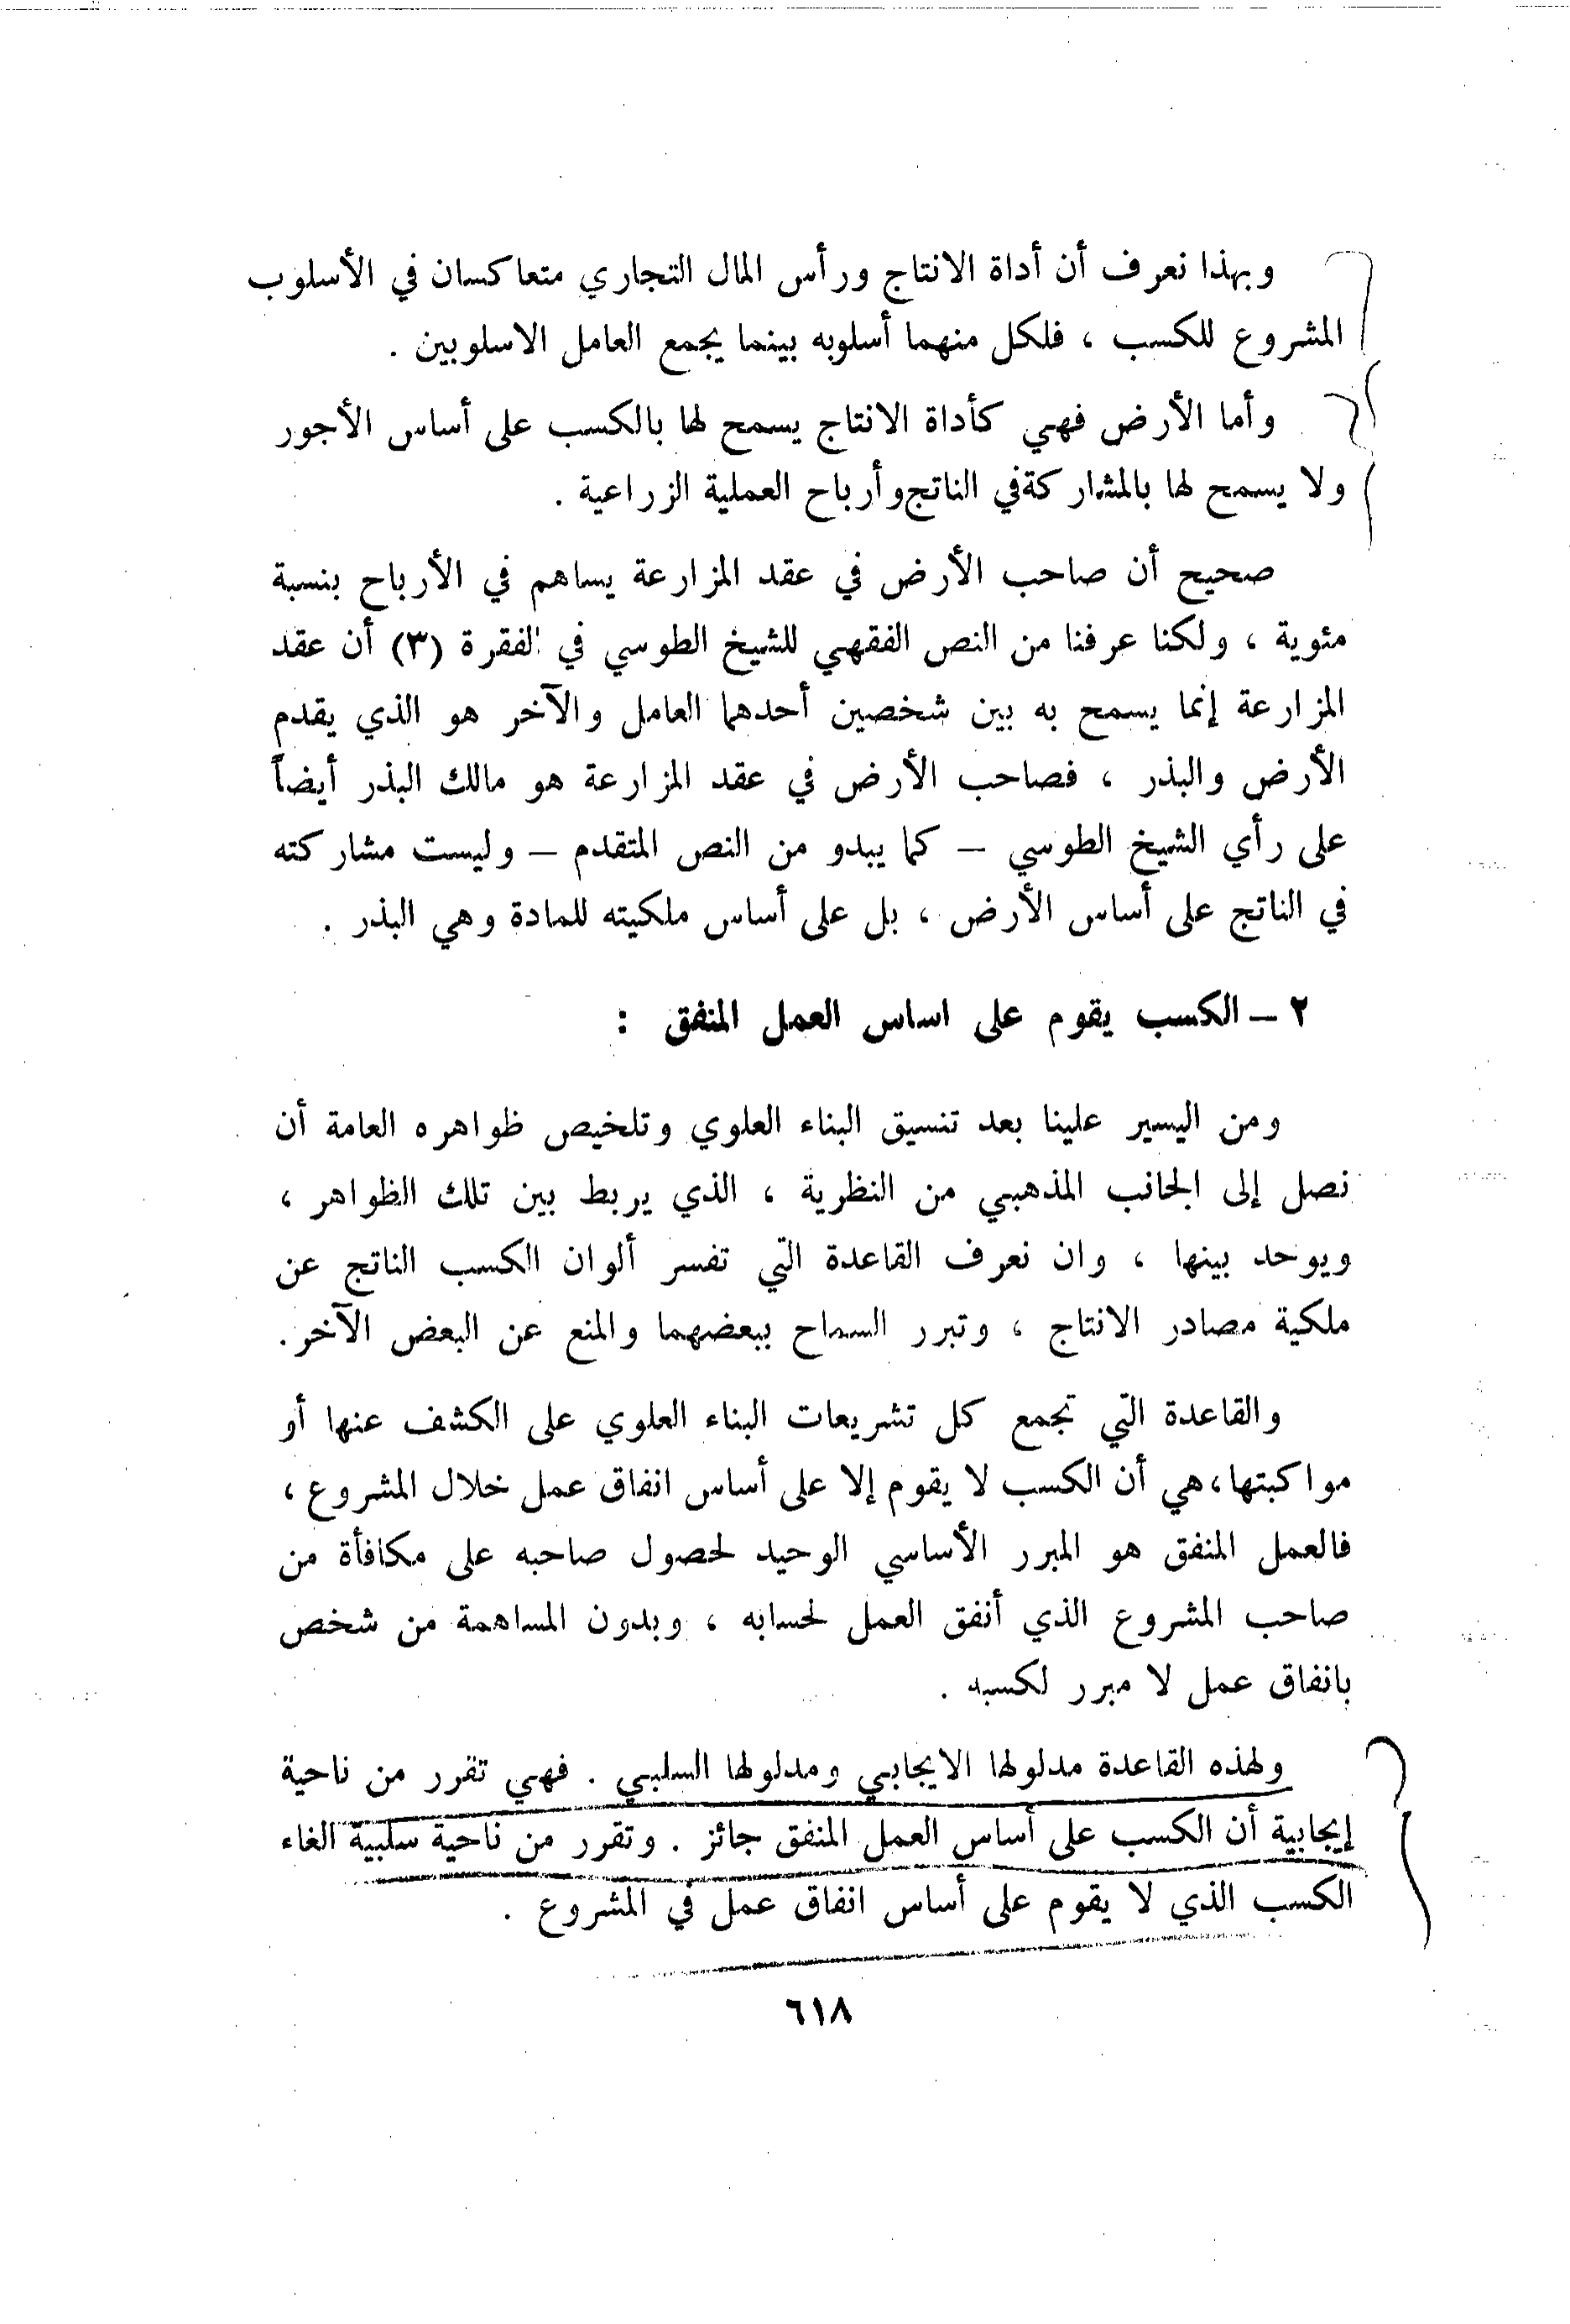 وبهذا نعرف أن أداة الانتاج ورأس المال التجاري متعاكسان في الأسلوب
المشروع للكسب ، فلكل منهما أسلوبه بينما يجمع العامل الاسلوبين .
وأما الأرض فهي كأداة الانتاج يسمح لها بالكسب على أساس الأجور
ولا يسمح لها بالمشاركة في الناتج وأرباح العملية الزراعية .
صحيح أن صاحب الأرض في عقد المزارعة يساهم في الأرباح بنسبة
مئوية ، ولكنا عرفنا من النص الفقهي للشيخ الطوسي في الفقرة (٣) أن عقد
المزارعة إنما يسمح به بين شخصين أحدهما العامل والآخر هو الذي يقدم
الأرض والبذر ، فصاحب الأرض في عقد المزارعة هو مالك البذر أيضاً
على رأي الشيخ الطوسي – كما يبدو من النص المتقدم – وليست مشاركته
في الناتج على أساس الأرض ، بل على أساس ملكيته للمادة وهي البذر .
٢ – الكسب يقوم على اساس العمل المنفق :
ومن اليسير علينا بعد تنسيق البناء العلوي وتلخيص ظواهره العامة أن
نصل إلى الجانب المذهبي من النظرية ، الذي يربط بين تلك الظواهر ،
ويوحد بينها ، وان نعرف القاعدة التي تفسر ألوان الكسب الناتج عن
ملكية مصادر الانتاج ، وتبرر السماح ببعضهما والمنع عن البعض الآخر.
والقاعدة التي تجمع كل تشريعات البناء العلوي على الكشف عنها أو
مواكبتها، هي أن الكسب لا يقوم إلا على أساس انفاق عمل خلال المشروع ،
فالعمل المنفق هو المبرر الأساسي الوحيد لحصول صاحبه على مكافأة من
صاحب المشروع الذي أنفق العمل لحسابه ، وبدون المساهمة من شخص
بانفاق عمل لا مبرر لكسبه .
ولهذه القاعدة مدلولها الايجابي ومدلولها السلبي . فهي تقرر من ناحية
إيجابية أن الكسب على أساس العمل المنفق جائز . وتقرر من ناحية سلبية الغاء
الكسب الذي لا يقوم على أساس انفاق عمل في المشروع .
٦١٨